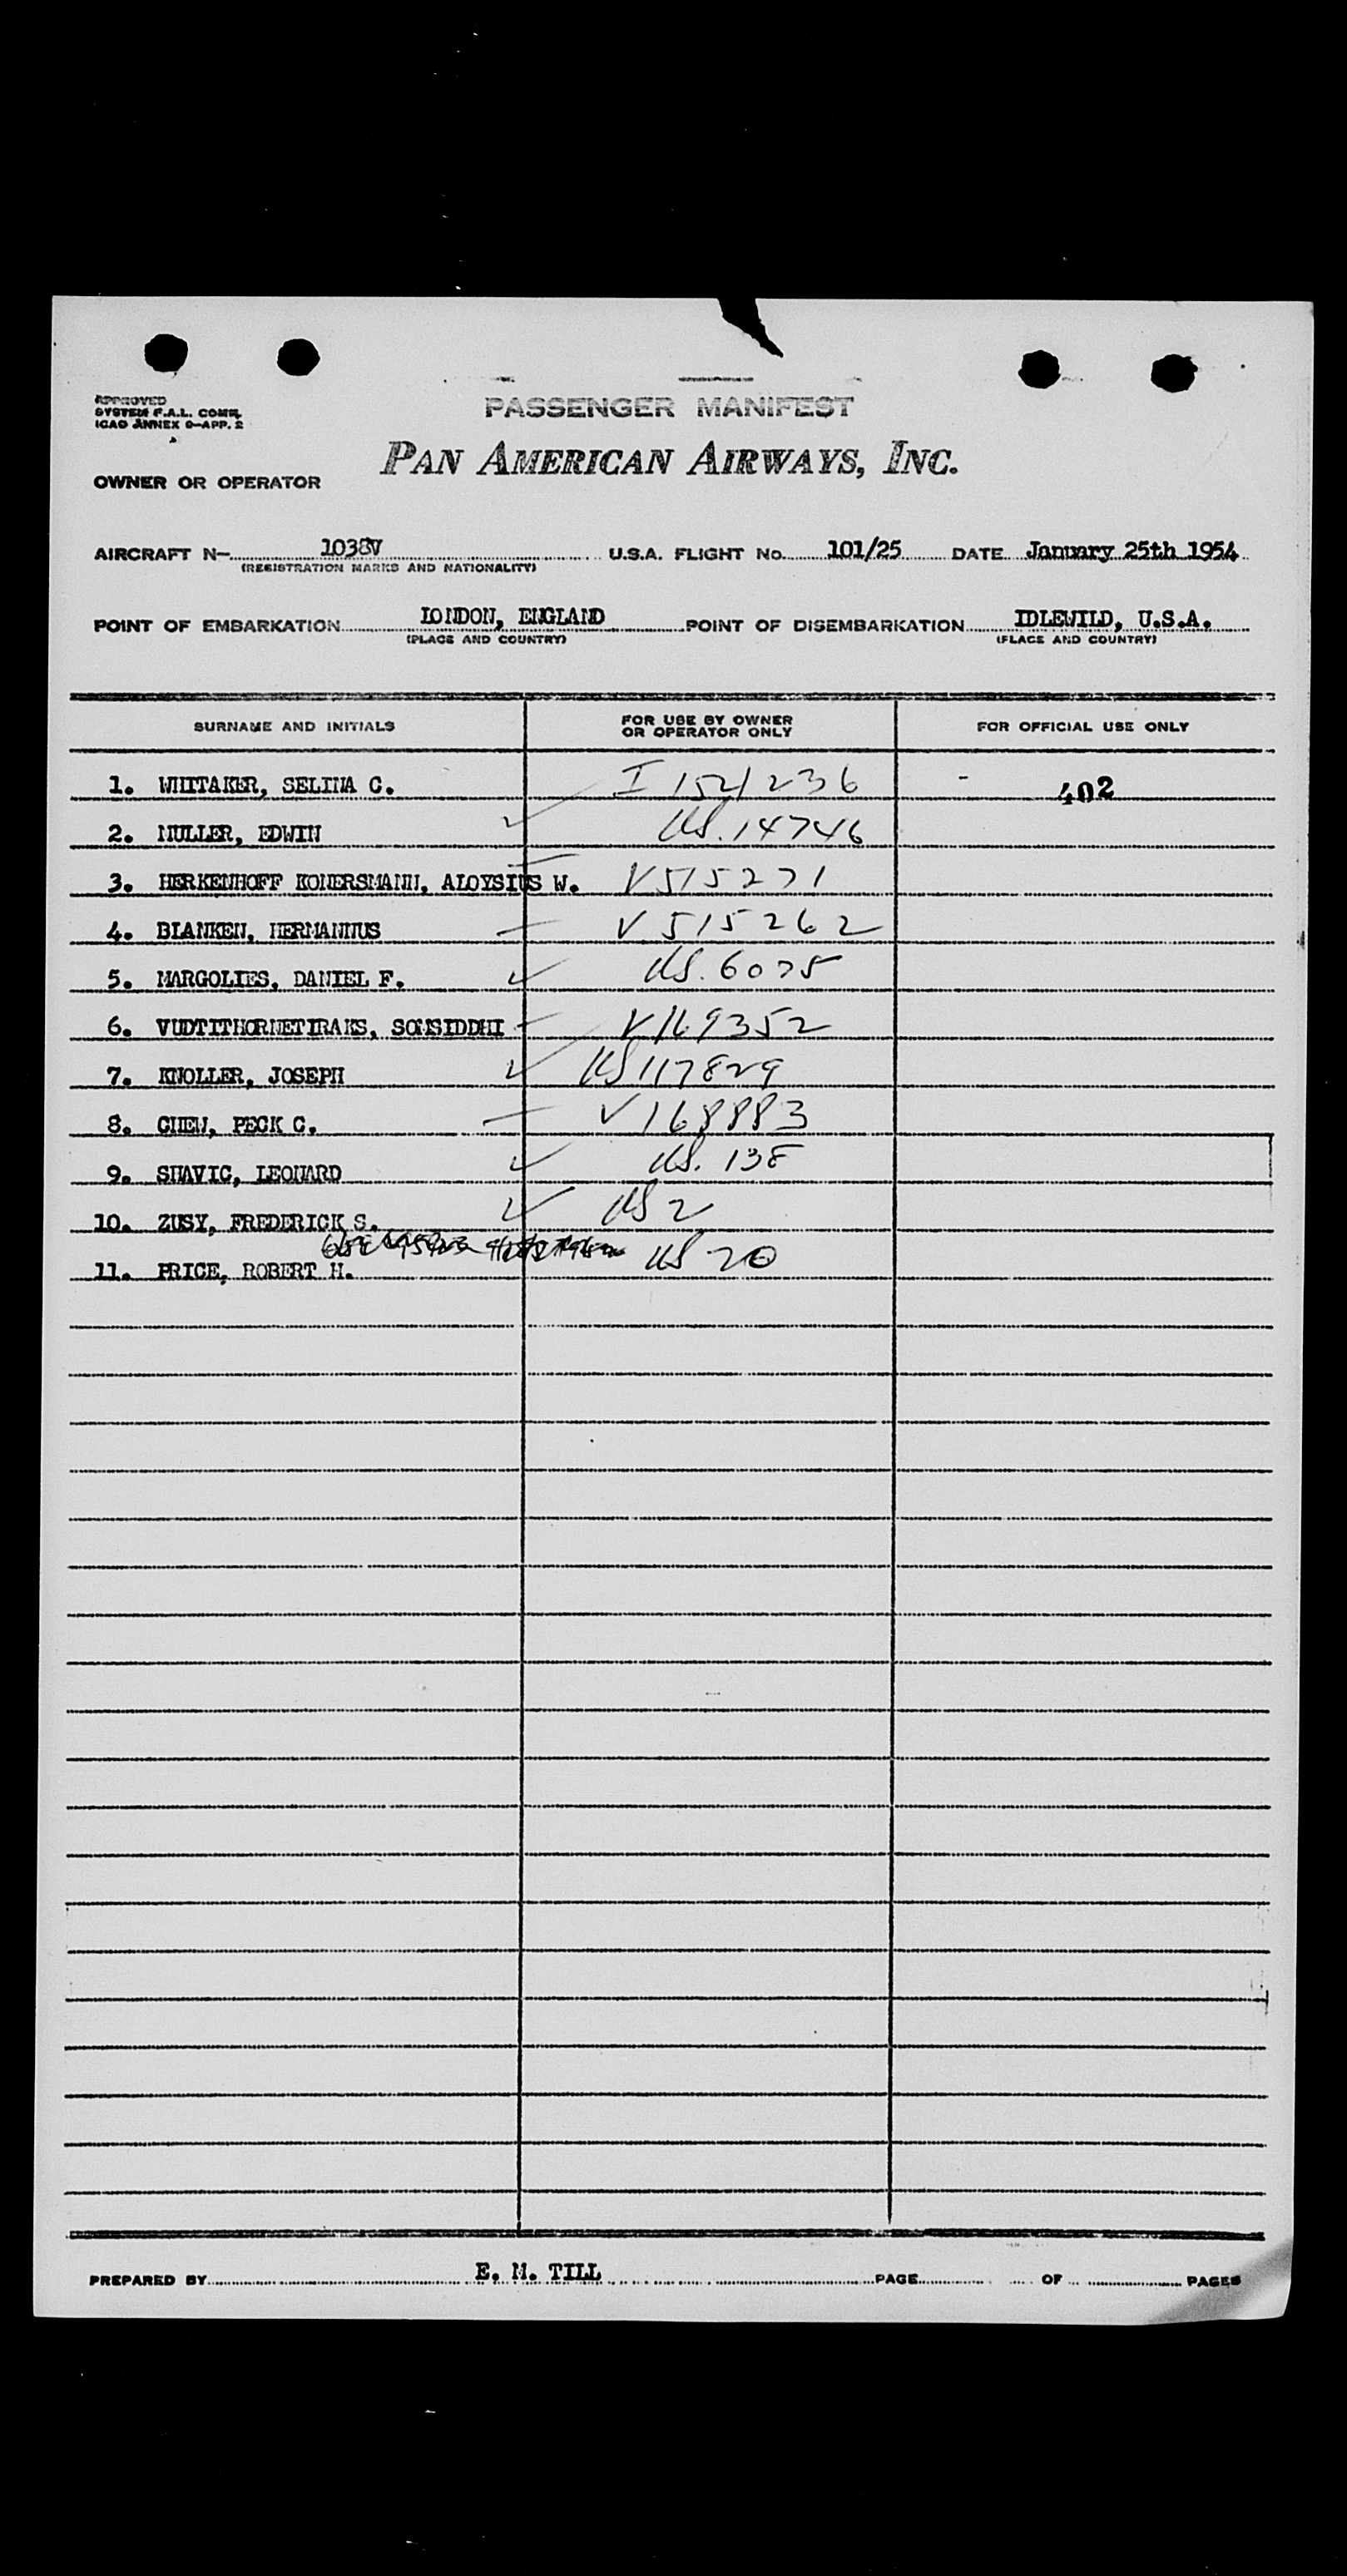 APPROVED
SYSTEM F.A.L. COMM.
ICAO ANNEX 9-APP. 2
PASSENGER MANIFEST
PAN AMERICAN AIRWAYS, INC.
OWNER OR OPERATOR
AIRCRAFT N- 1038V U.S.A. FLIGHT No. 101/25 DATE January 25th 1954
(REGISTRATION MARKS AND NATIONALITY)
POINT OF EMBARKATION LONDON, ENGLAND POINT OF DISEMBARKATION IDLEWILD, U.S.A.
(PLACE AND COUNTRY) (PLACE AND COUNTRY)
SURNAME AND INITIALS FOR USE BY OWNER OR OPERATOR ONLY FOR OFFICIAL USE ONLY
1. WHITTAKER, SELINA C. I 1521236 402
2. MULLER, EDWIN US. 14746
3. HERKENHOFF KONERSMANN, ALOYSIUS W. V 515271
4. BLANKEN, HERMANNUS V 515262
5. MARGOLIES, DANIEL F. US. 6075
6. VUDTITHORNETIRAKS, SOMSIDDHI V 169352
7. KNOLLER, JOSEPH US 117829
8. CHEW, PECK C. V 168883
9. SHAVIC, LEONARD US. 138
10. ZUSY, FREDERICK S. US 2
11. PRICE, ROBERT H. US 20
PREPARED BY E. M. TILL PAGE OF PAGES